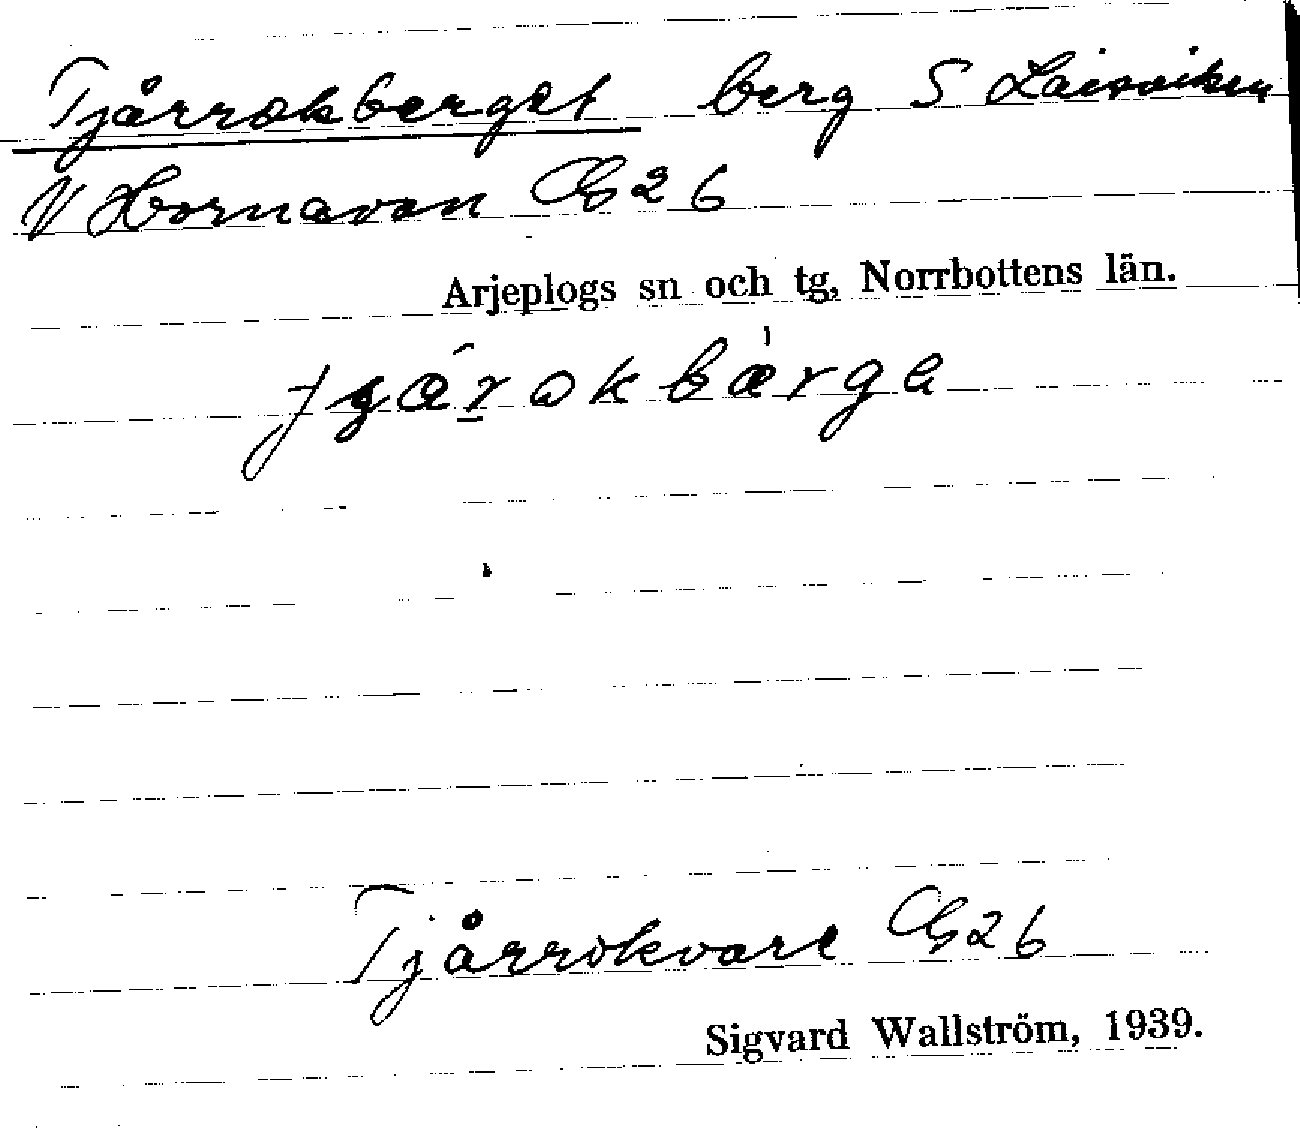 Tjårrokberget berg S Laisviken
N Hornavan GS 26
Arjeplogs sn och tg, Norrbottens län.
Tjårrokvare GS 26
Sigvard Wallström, 1939.